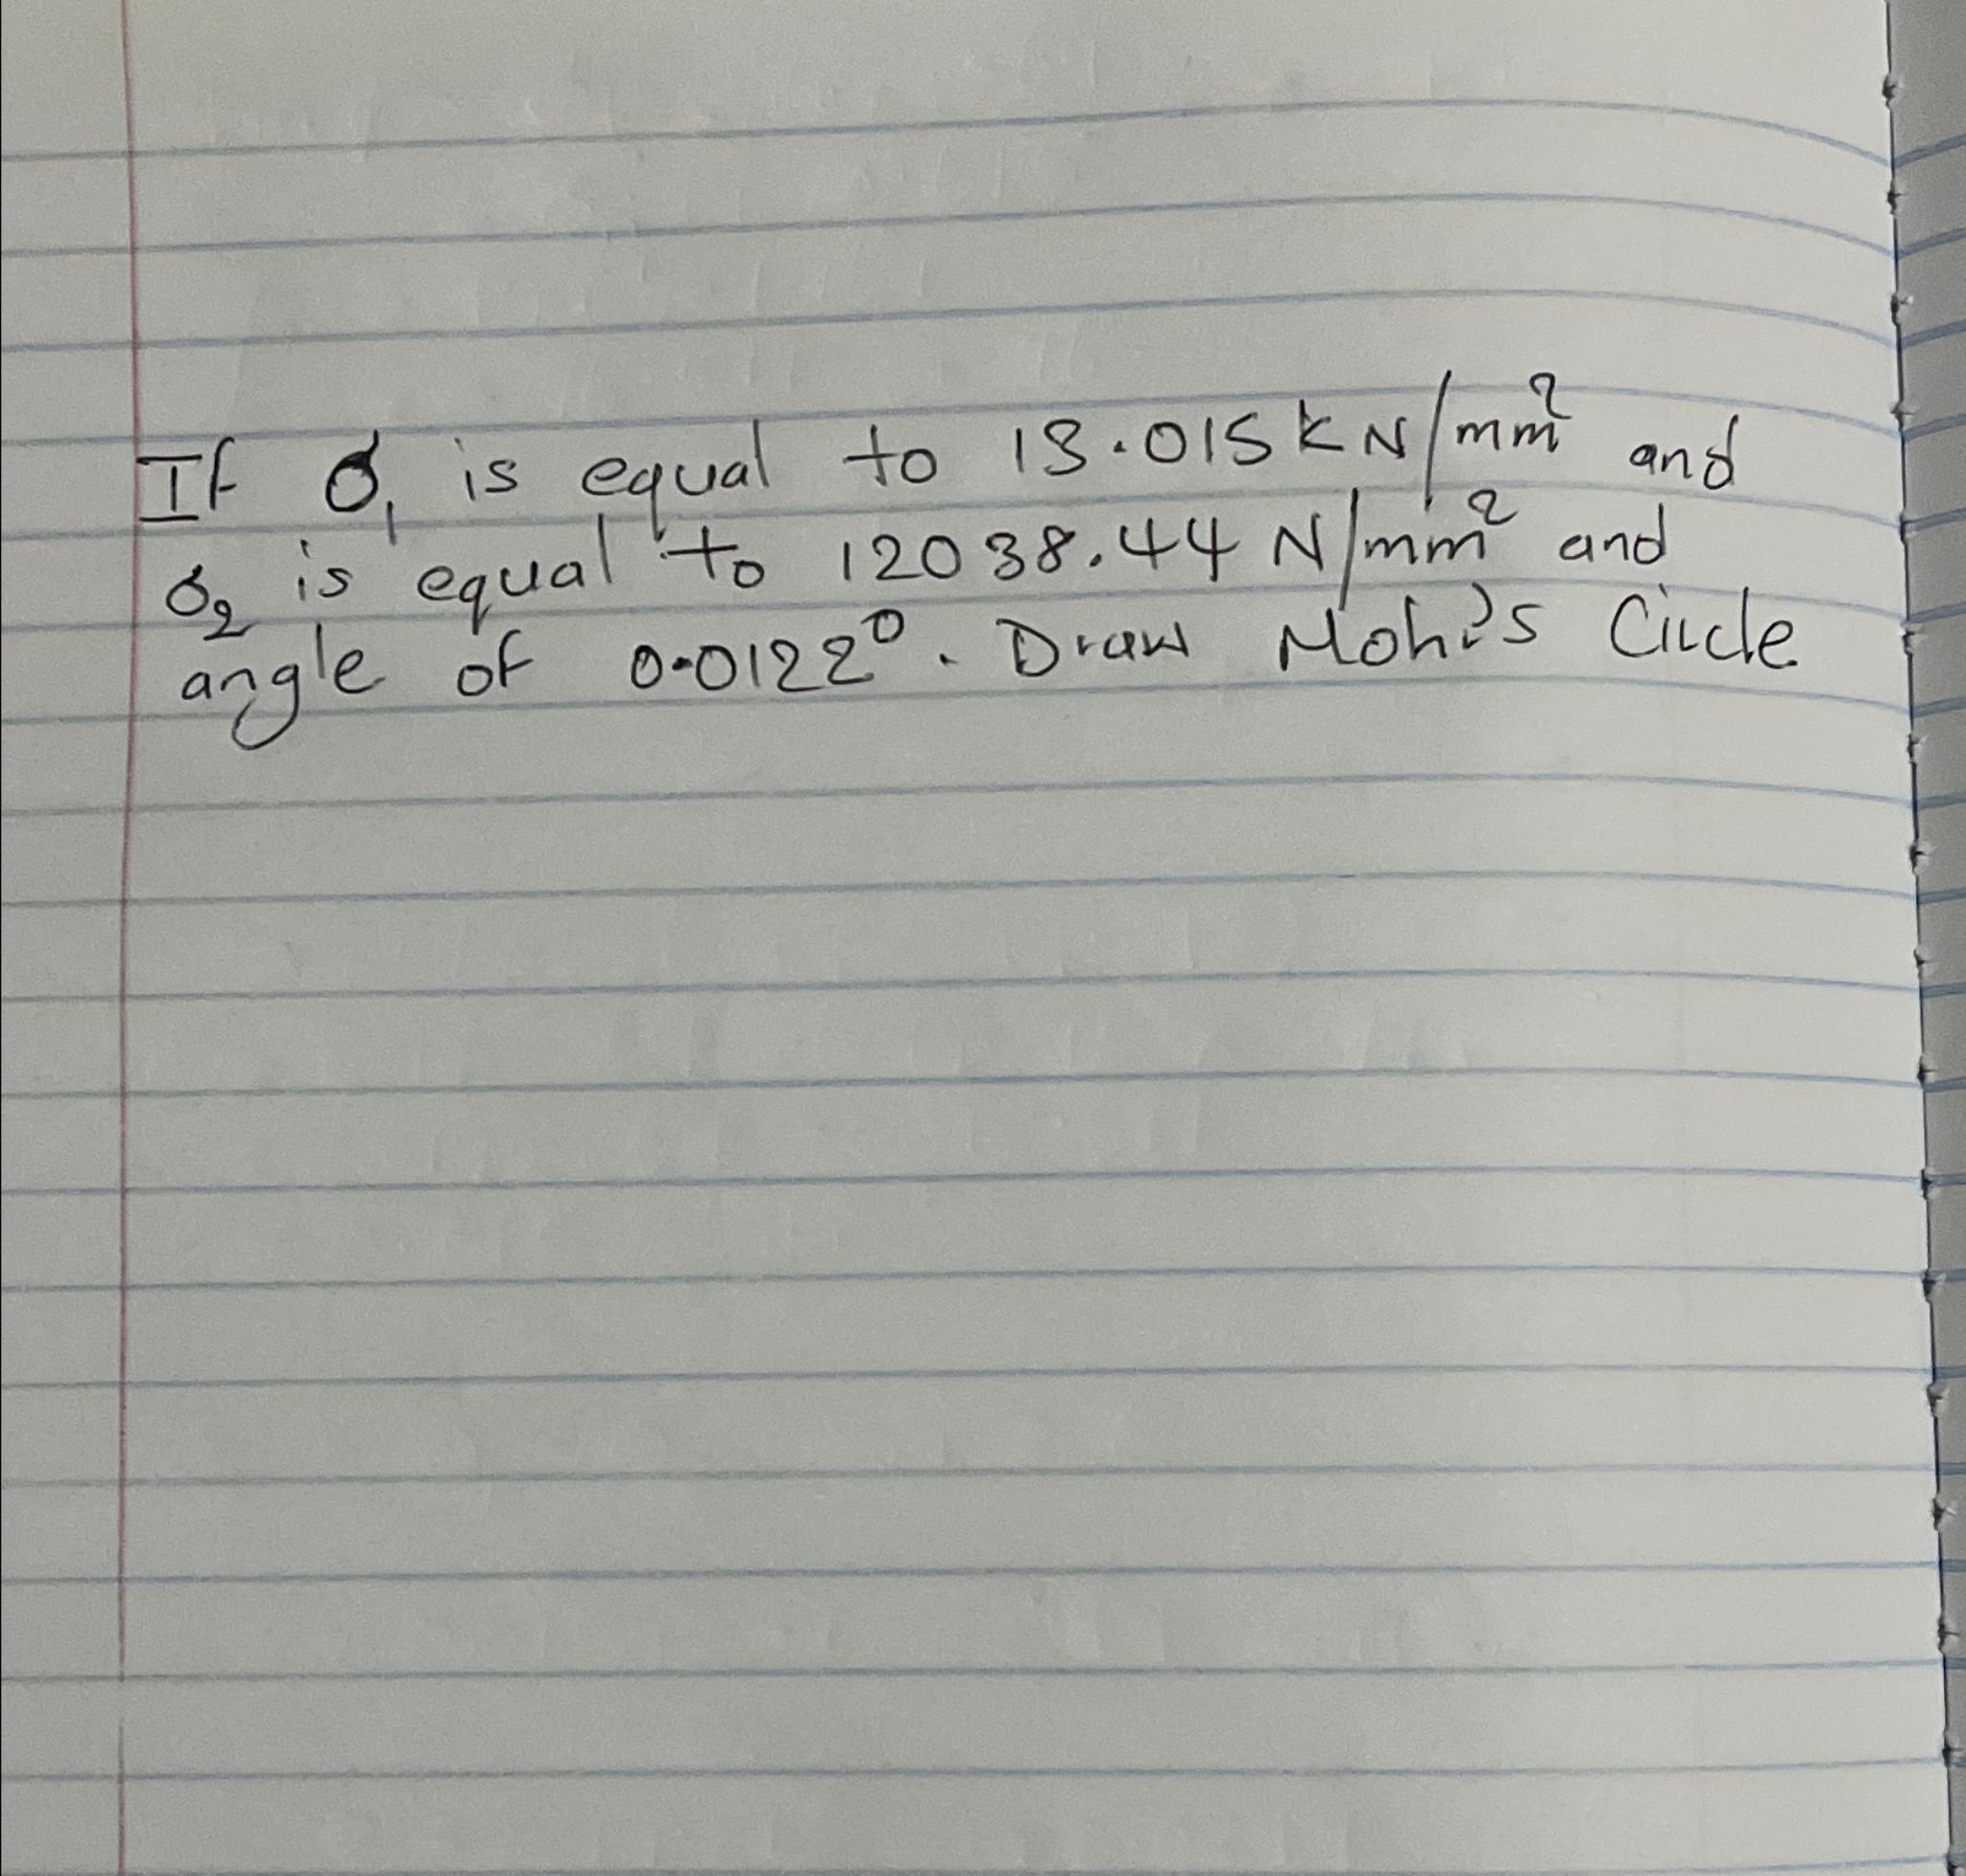 If σ₁ is equal to 13.015 kN/mm² and
σ₂ is equal to 12038.44 N/mm² and
angle of 0.0122⁰. Draw Mohr's Circle